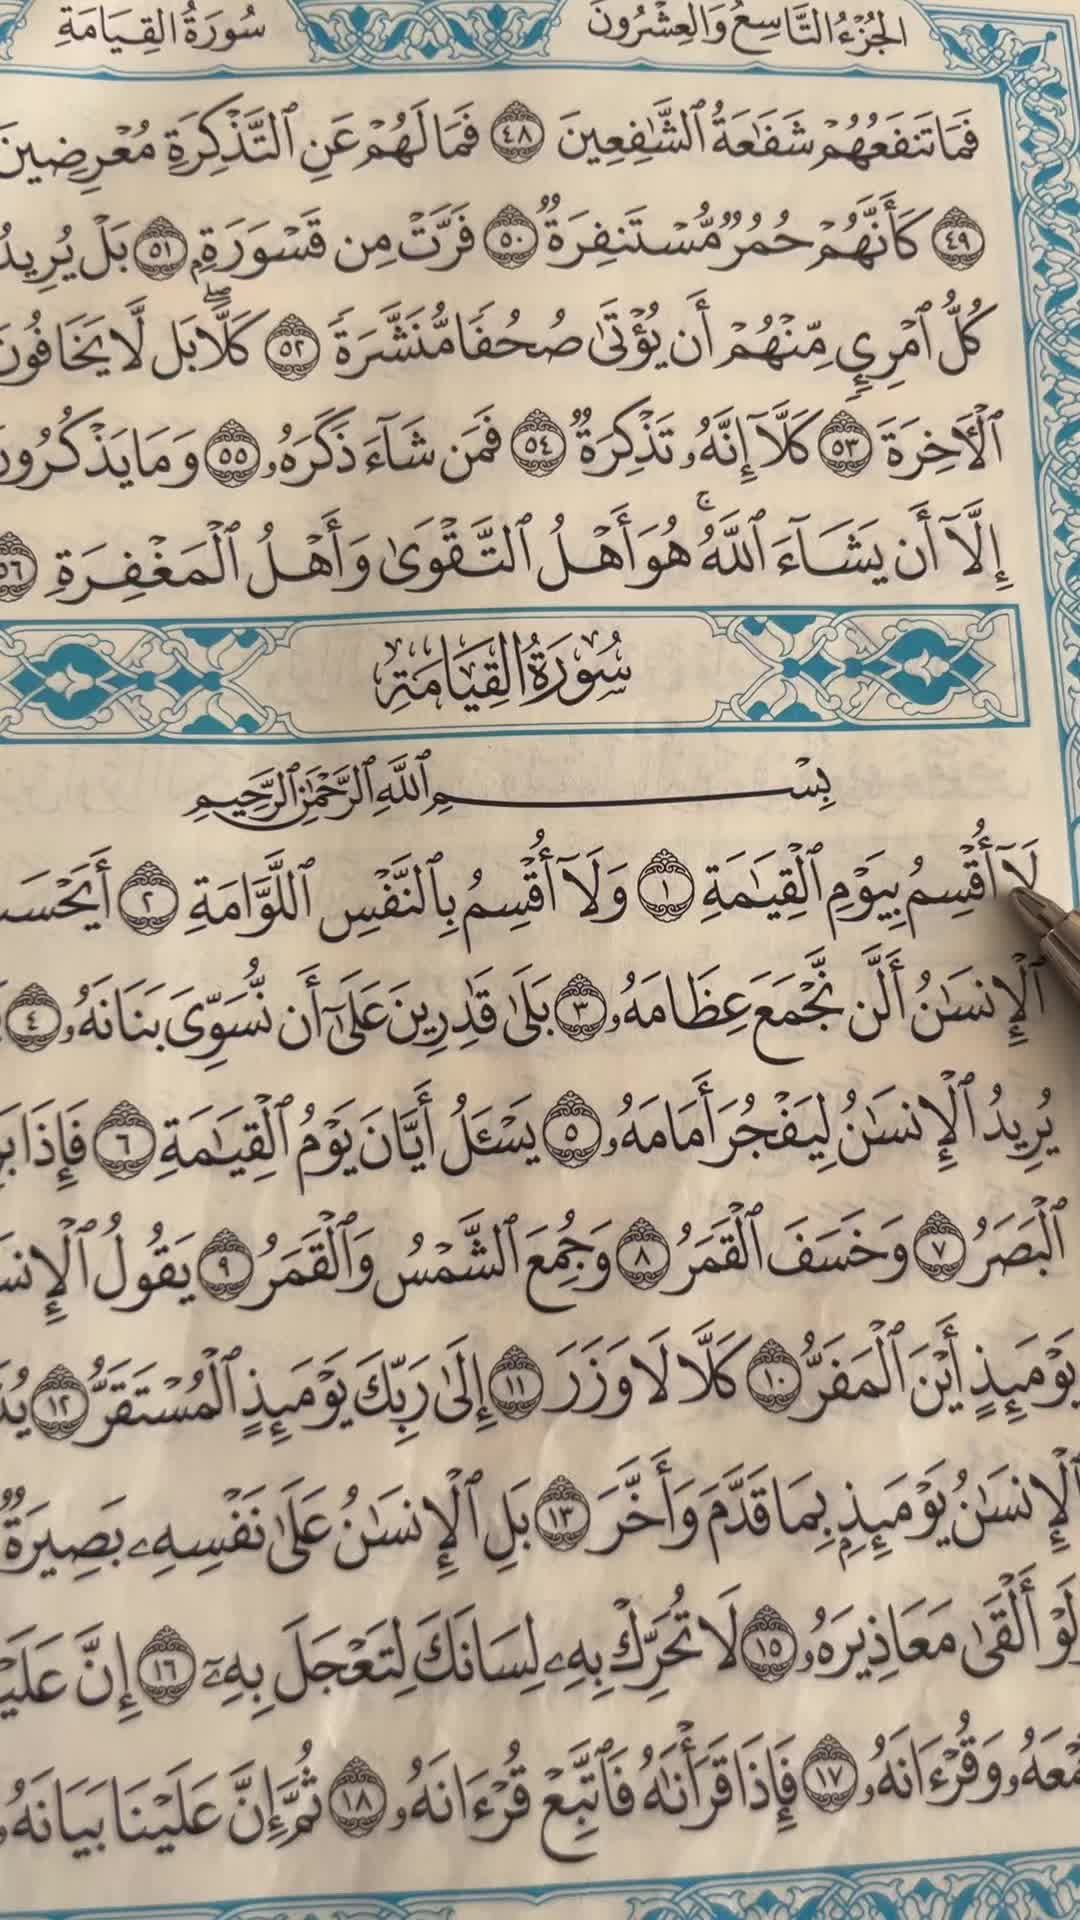 الجُزْءُ التَّاسِعُ وَالعِشْرُونَ
سُورَةُ القِيَامَةِ
فَمَا تَنفَعُهُمْ شَفَٰعَةُ ٱلشَّٰفِعِينَ ٤٨ فَمَا لَهُمْ عَنِ ٱلتَّذْكِرَةِ مُعْرِضِينَ
٤٩ كَأَنَّهُمْ حُمُرٌ مُّسْتَنفِرَةٌ ٥٠ فَرَّتْ مِن قَسْوَرَةٍۭ ٥١ بَلْ يُرِيدُ
كُلُّ ٱمْرِئٍ مِّنْهُمْ أَن يُؤْتَىٰ صُحُفًا مُّنَشَّرَةً ٥٢ كَلَّاۖ بَل لَّا يَخَافُونَ
ٱلْأٓخِرَةَ ٥٣ كَلَّآ إِنَّهُۥ تَذْكِرَةٌ ٥٤ فَمَن شَآءَ ذَكَرَهُۥ ٥٥ وَمَا يَذْكُرُونَ
إِلَّآ أَن يَشَآءَ ٱللَّهُۚ هُوَ أَهْلُ ٱلتَّقْوَىٰ وَأَهْلُ ٱلْمَغْفِرَةِ ٥٦
سُورَةُ القِيَامَةِ
بِسْمِ ٱللَّهِ ٱلرَّحْمَٰنِ ٱلرَّحِيمِ
لَآ أُقْسِمُ بِيَوْمِ ٱلْقِيَٰمَةِ ١ وَلَآ أُقْسِمُ بِٱلنَّفْسِ ٱللَّوَّامَةِ ٢ أَيَحْسَ
ٱلْإِنسَٰنُ أَلَّن نَّجْمَعَ عِظَامَهُۥ ٣ بَلَىٰ قَٰدِرِينَ عَلَىٰٓ أَن نُّسَوِّىَ بَنَانَهُۥ ٤
يُرِيدُ ٱلْإِنسَٰنُ لِيَفْجُرَ أَمَامَهُۥ ٥ يَسْـَٔلُ أَيَّانَ يَوْمُ ٱلْقِيَٰمَةِ ٦ فَإِذَا بَرِ
ٱلْبَصَرُ ٧ وَخَسَفَ ٱلْقَمَرُ ٨ وَجُمِعَ ٱلشَّمْسُ وَٱلْقَمَرُ ٩ يَقُولُ ٱلْإِنسَ
يَوْمَئِذٍ أَيْنَ ٱلْمَفَرُّ ١٠ كَلَّا لَا وَزَرَ ١١ إِلَىٰ رَبِّكَ يَوْمَئِذٍ ٱلْمُسْتَقَرُّ ١٢
ٱلْإِنسَٰنُ يَوْمَئِذٍۭ بِمَا قَدَّمَ وَأَخَّرَ ١٣ بَلِ ٱلْإِنسَٰنُ عَلَىٰ نَفْسِهِۦ بَصِيرَةٌ
وَلَوْ أَلْقَىٰ مَعَاذِيرَهُۥ ١٥ لَا تُحَرِّكْ بِهِۦ لِسَانَكَ لِتَعْجَلَ بِهِۦٓ ١٦ إِنَّ عَلَيْ
جَمْعَهُۥ وَقُرْءَانَهُۥ ١٧ فَإِذَا قَرَأْنَٰهُ فَٱتَّبِعْ قُرْءَانَهُۥ ١٨ ثُمَّ إِنَّ عَلَيْنَا بَيَانَهُۥ